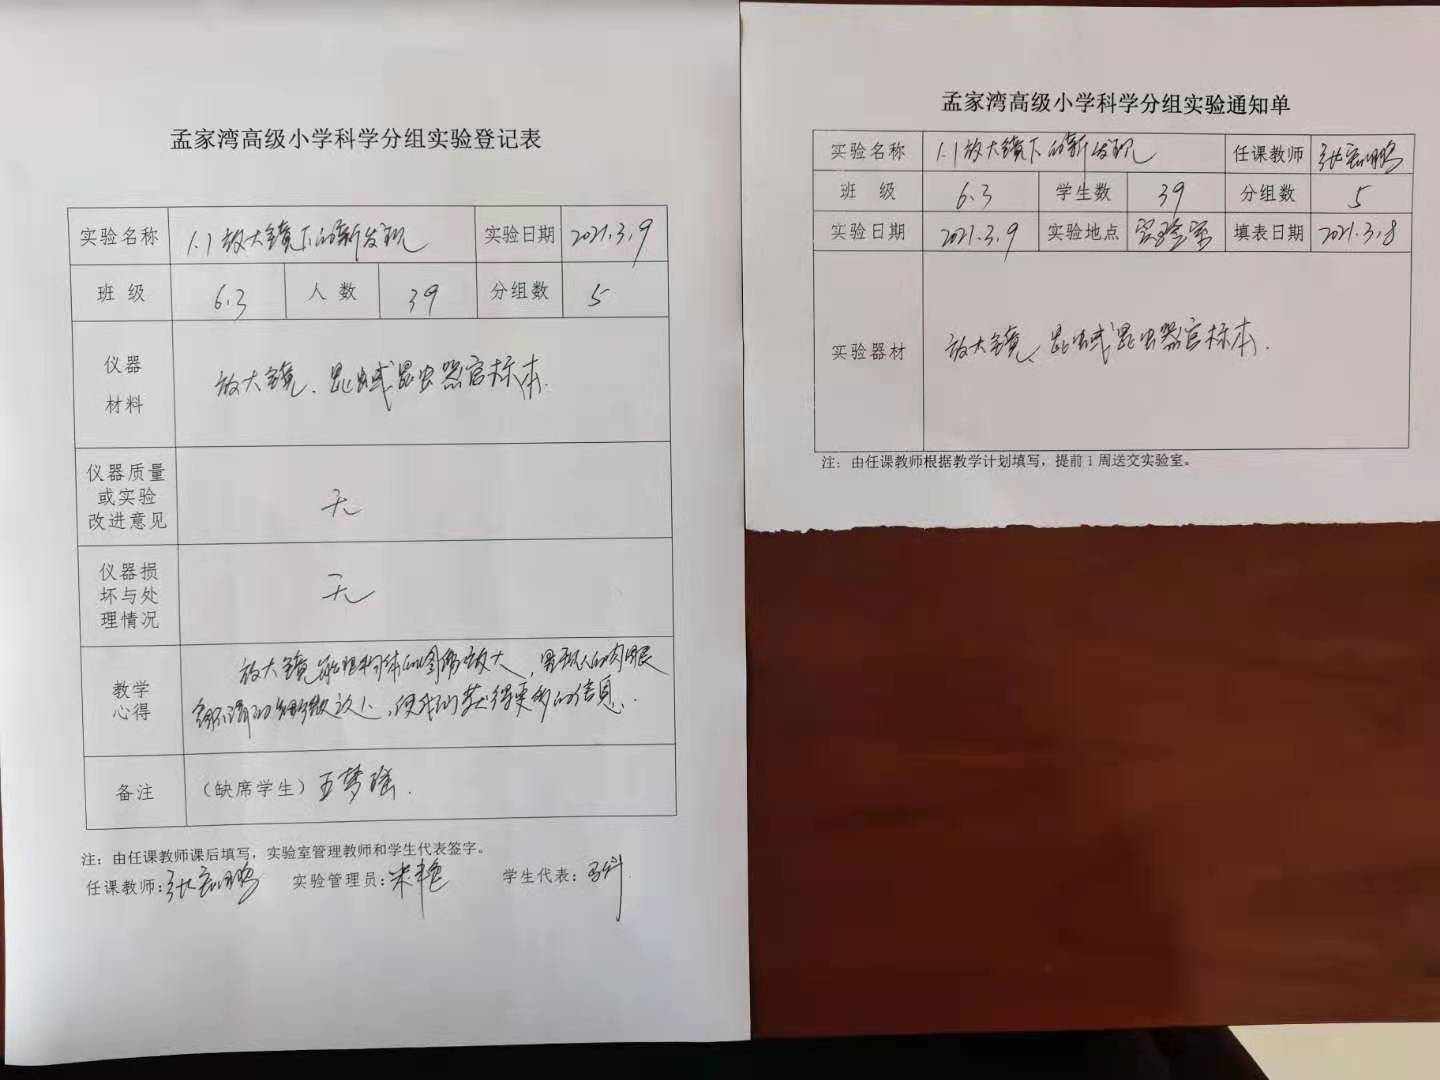 孟家湾高级小学科学分组实验登记表
实验名称 1.1放大镜下的新发现 实验日期 2021.3.9
班 级 6.3 人 数 39 分组数 5
仪器
材料
放大镜、昆虫或昆虫器官标本.
仪器质量
或实验
改进意见
无
仪器损
坏与处
理情况
无
教学
心得
放大镜能把物体的图像放大,看到人的肉眼
看不清的细微之处,使我们获得更多的信息.
备注 (缺席学生)王梦瑶.
注：由任课教师课后填写，实验室管理教师和学生代表签字。
任课教师: 实验管理员: 学生代表:
孟家湾高级小学科学分组实验通知单
实验名称 1.1放大镜下的新发现 任课教师
班 级 6.3 学生数 39 分组数 5
实验日期 2021.3.9 实验地点 实验室 填表日期 2021.3.8
实验器材 放大镜、昆虫或昆虫器官标本.
注：由任课教师根据教学计划填写，提前1周送交实验室。